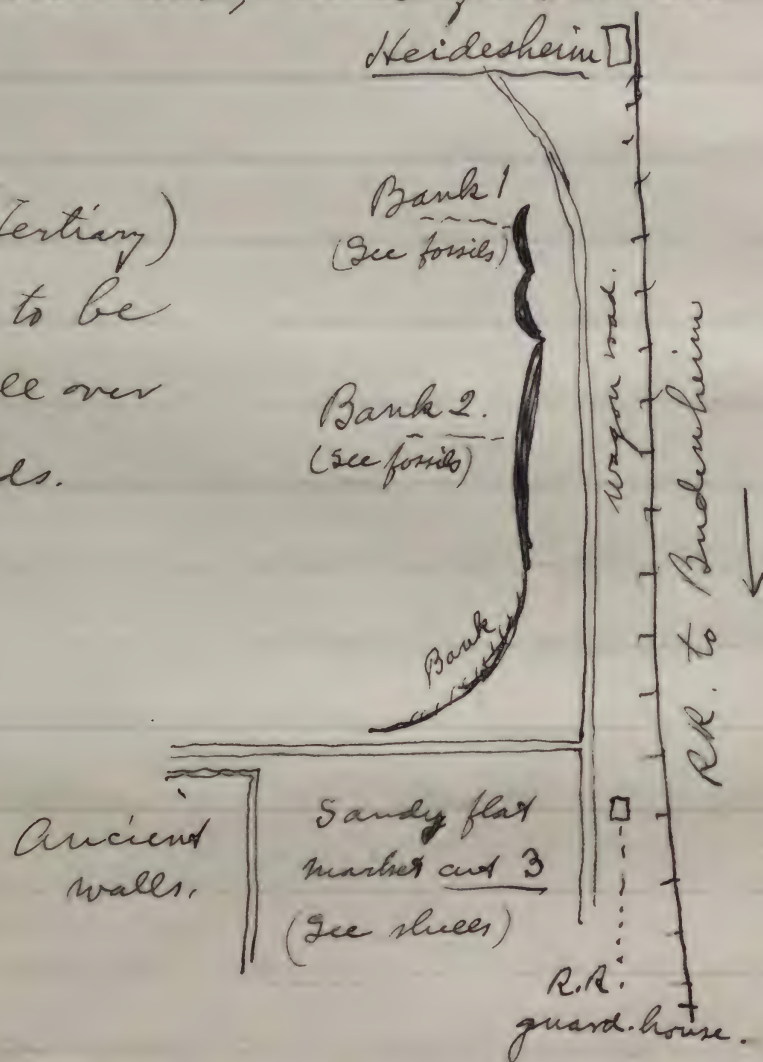 Heidesheim
Tertiary)
to be
over
Bank 1
(See fossils)
Bank 2.
(See fossils)
Bank
Wagon road.
RR. to Budenheim
Ancient
walls.
Sandy flat
3
(See shells)
R.R.
guard-house.